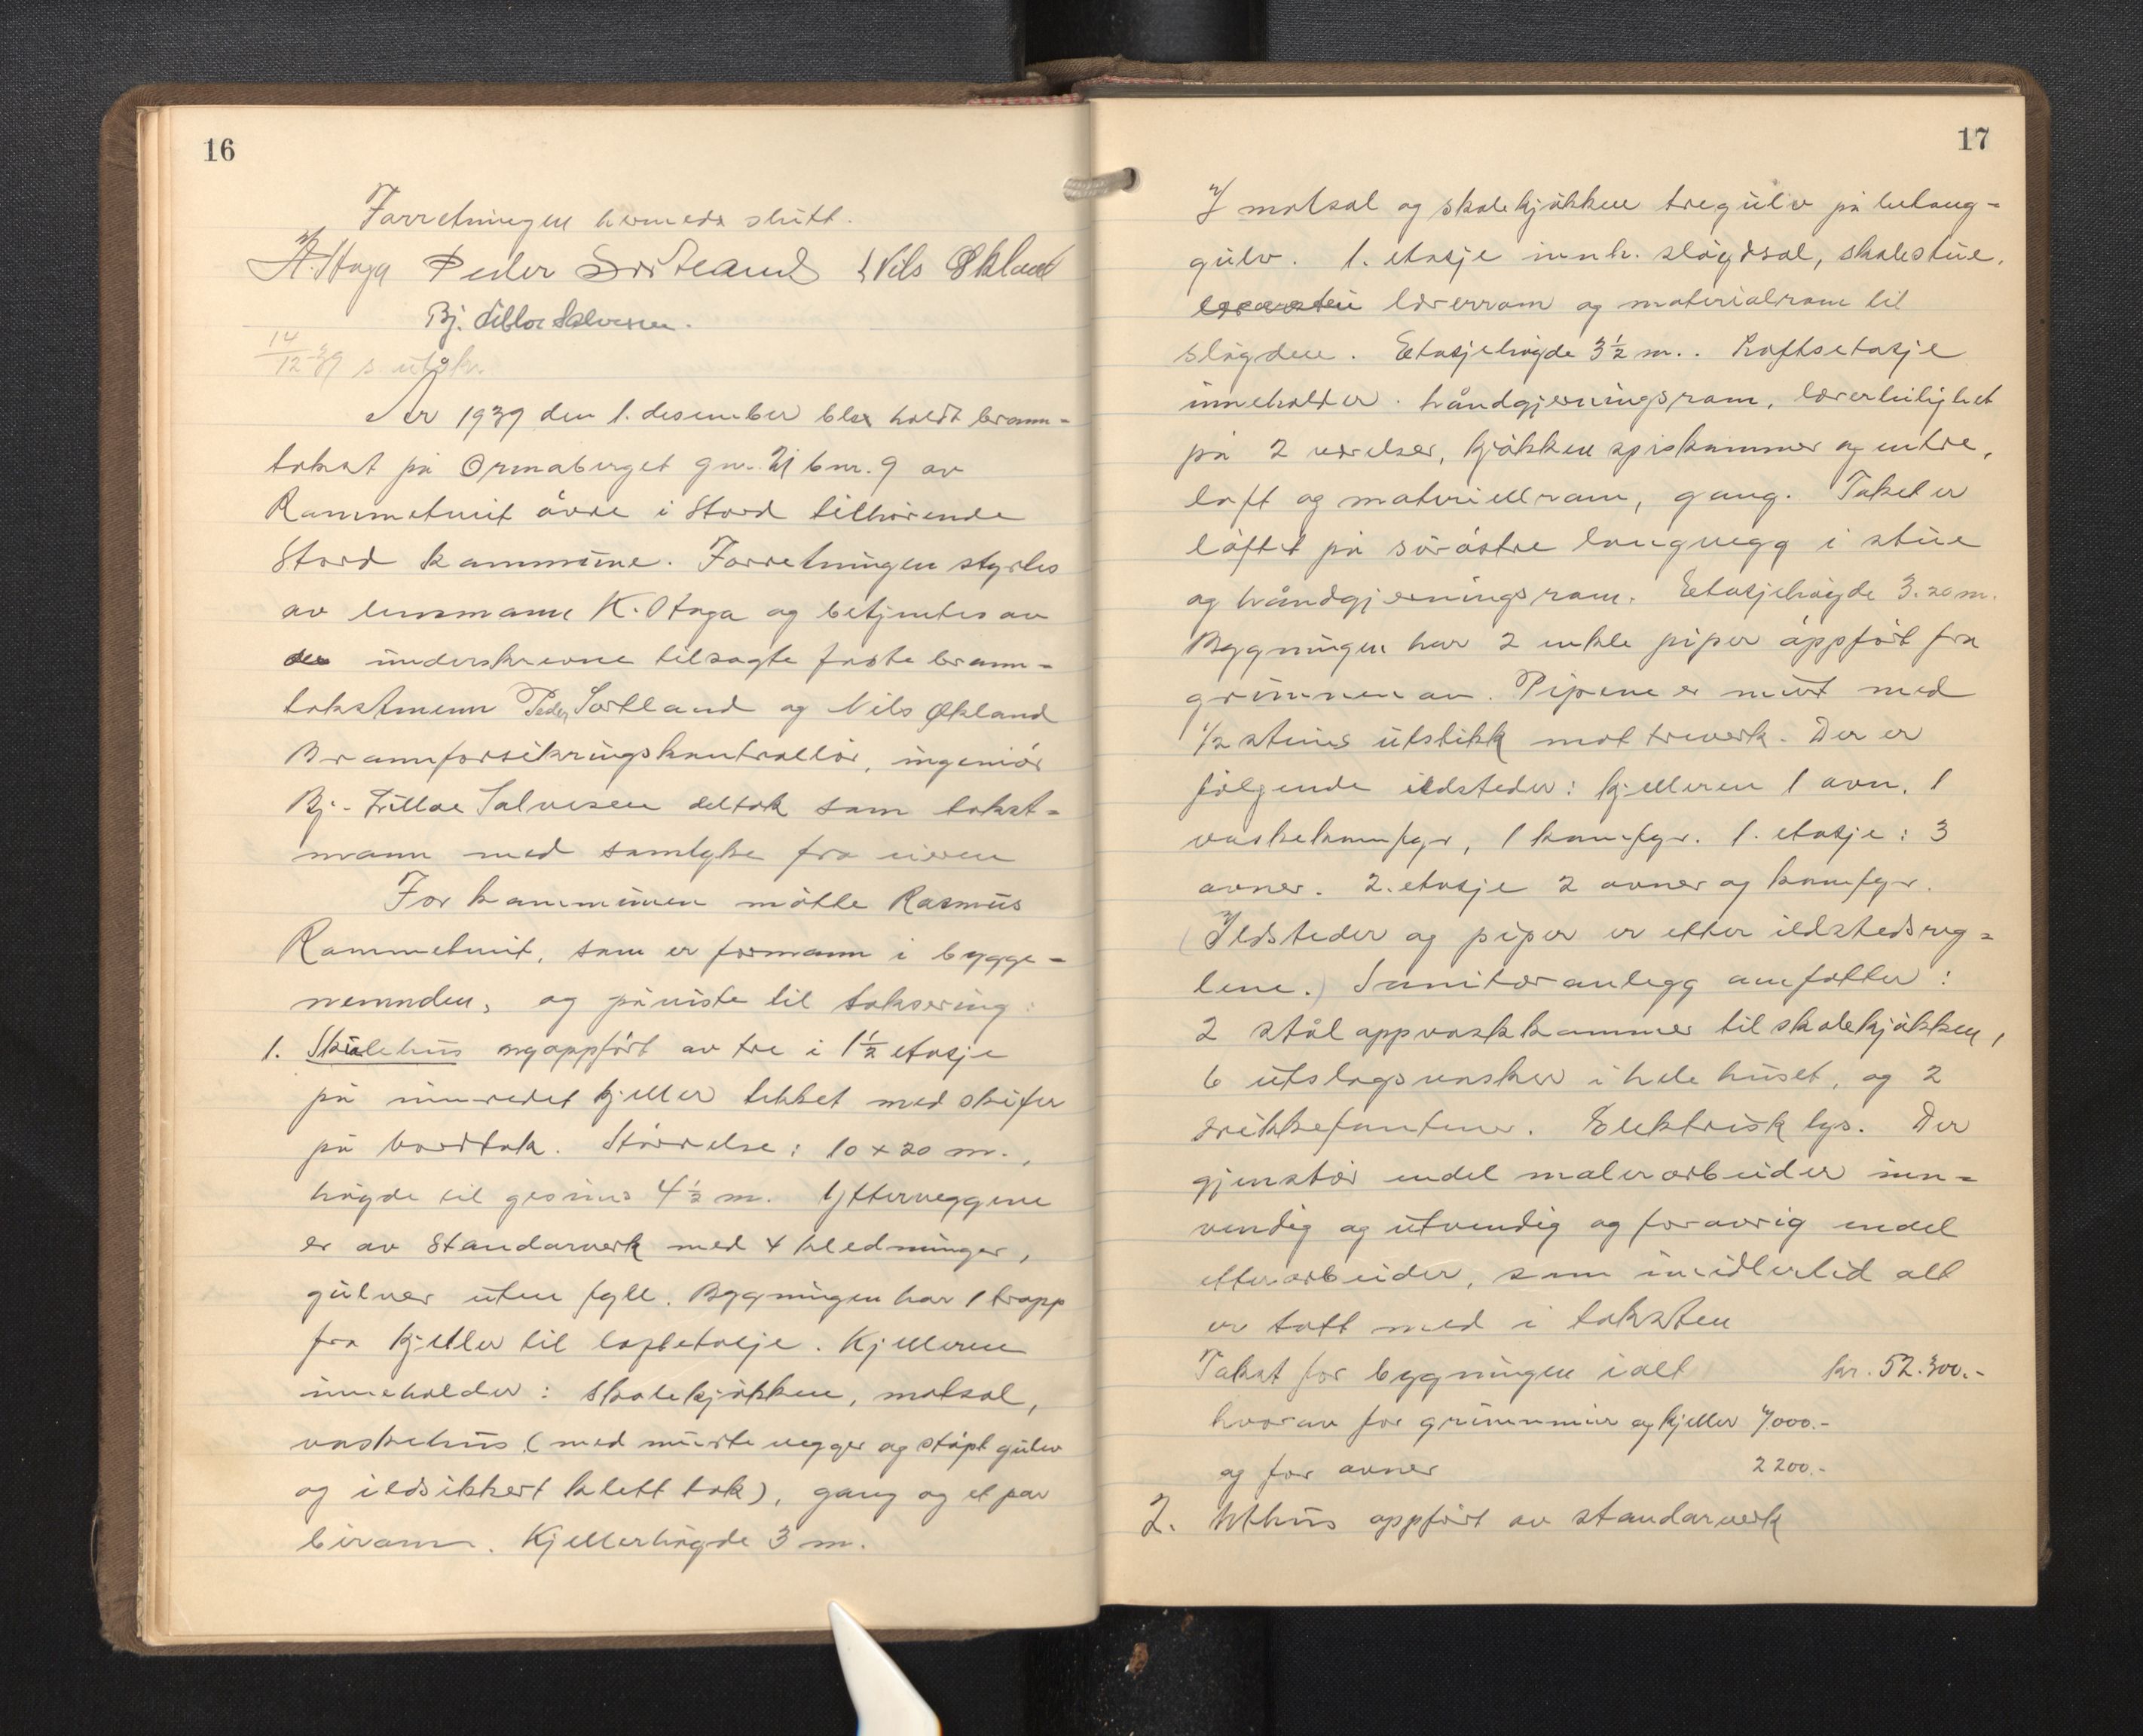 16
Forretningen hermeda slutt.
K. Haga Peder Sørtland Nils Økland
Bj. Lilloe Salvesen.
14/12-39 s. utskr.
År 1939 den 1. desember blev holdt brann-
takst på Ormaberget gnr. 21 bnr. 9 av
Rommetveit øvre i Stord tilhørende
Stord kommune. Forretningen styrtes
av lensmann K. Haga og betjentes av
de underskrevne tilsagte faste brann-
takstmenn Peder Sørtland og Nils Økland
Brannforsikringskontrollør, ingeniør
Bj. Lilloe Salvesen deltok som takst-
mann med samtykke fra eieren
For kommunen møtte Rasmus
Rommetveit, som er formann i bygge-
nemnden, og påviste til taksering:
1. Skulehus nyoppført av tre i 1½ etasje
på innredet kjeller tekket med skifer
på bordtak. Størrelse: 10 x 20 m.,
høgde til gesims 4½ m. Ytterveggene
er av standarverk med 4 kledninger,
gulver uten fyll. Bygningen har 1 trapp
fra kjeller til loftetasje. Kjelleren
inneholder: skolekjøkken, matsal,
vaskehus (med murte vegger og støpt gulv
og ildsikkert klett tak), gang og et par
birom. Kjellerhøgde 3 m.
17
I matsal og skolekjøkken tregulv på betong-
gulv. 1. etasje innh. sløydsal, skolestue,
lærerrom og materialrom til
sløyden. Etasjehøgde 3½ m.. Loftsetasje
inneholder. håndgjerningsrom, lærerleilighet
på 2 værelser, kjøkken spiskammer og entre,
loft og materiellrom, gang. Taket er
løftet på sørøstre langvegg i stue
og håndgjerningsrom. Etasjehøgde 3.20 m.
Bygningen har 2 enkle piper oppført fra
grunnen av. Pipene er murt med
1/2 steins utstikk mot treverk. Der er
følgende ildsteder: kjelleren 1 ovn, 1
vaskekomfyr, 1 komfyr. 1. etasje: 3
ovner. 2. etasje 2 ovner og komfyr.
(Ildsteder og piper er etter ildstedsreg-
lene.) Sanitæranlegg omfatter:
2 stål oppvaskkommer til skolekjøkken,
6 utslagsvasker i hele huset, og 2
drikkefontener. Elektrisk lys. Der
gjenstår endel malerarbeider inn-
vendig og utvendig og forøvrig endel
etterarbeider, som imidlertid alt
er tatt med i taksten
Takst for bygningen ialt kr. 52.300.-
hvorav for grunnmur og kjeller 7000.-
og for ovner 2200.-
2. Uthus oppført av standarverk